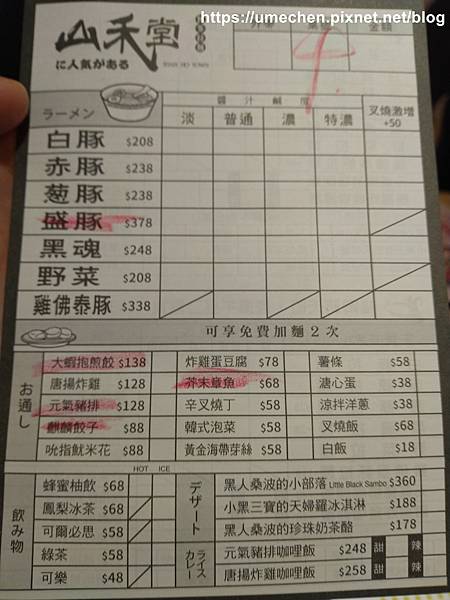 https://umechen.pixnet.net/blog
山禾堂
に人気がある
金額
9.
ラーメン
醬汁鹹度
淡 普通 濃 特濃 叉燒激增 +50
白豚 $208
赤豚 $238
葱豚 $238
盛豚 $378
黑魂 $248
野菜 $208
雞佛泰豚 $338
可享免費加麵2次
お通し
大蝦抱煎餃 $138 炸雞蛋豆腐 $78 薯條 $58
唐揚炸雞 $128 芥末章魚 $68 溏心蛋 $38
元氣豬排 $128 辛叉燒丁 $58 涼拌洋蔥 $38
麒麟餃子 $88 韓式泡菜 $58 叉燒飯 $68
吮指魷米花 $88 黃金海帶芽絲 $58 白飯 $18
飲み物
HOT ICE
蜂蜜柚飲 $68
鳳梨冰茶 $68
可爾必思 $58
綠茶 $58
可樂 $48
デザート
黑人桑波的小部落 Little Black Sambo $360
小黑三寶的天婦羅冰淇淋 $188
黑人桑波的珍珠奶茶酪 $178
ライスカレー
元氣豬排咖哩飯 $248 甜 辣
唐揚炸雞咖哩飯 $258 甜 辣